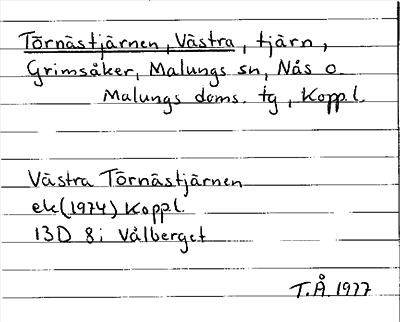 Törnästjärnen, Västra, tjärn,
Grimsåker, Malungs sn, Nås o.
Malungs doms. tg, Koppl.
Västra Törnästjärnen
ek (1974) Koppl.
13D 8i Vålberget
T.Å. 1977